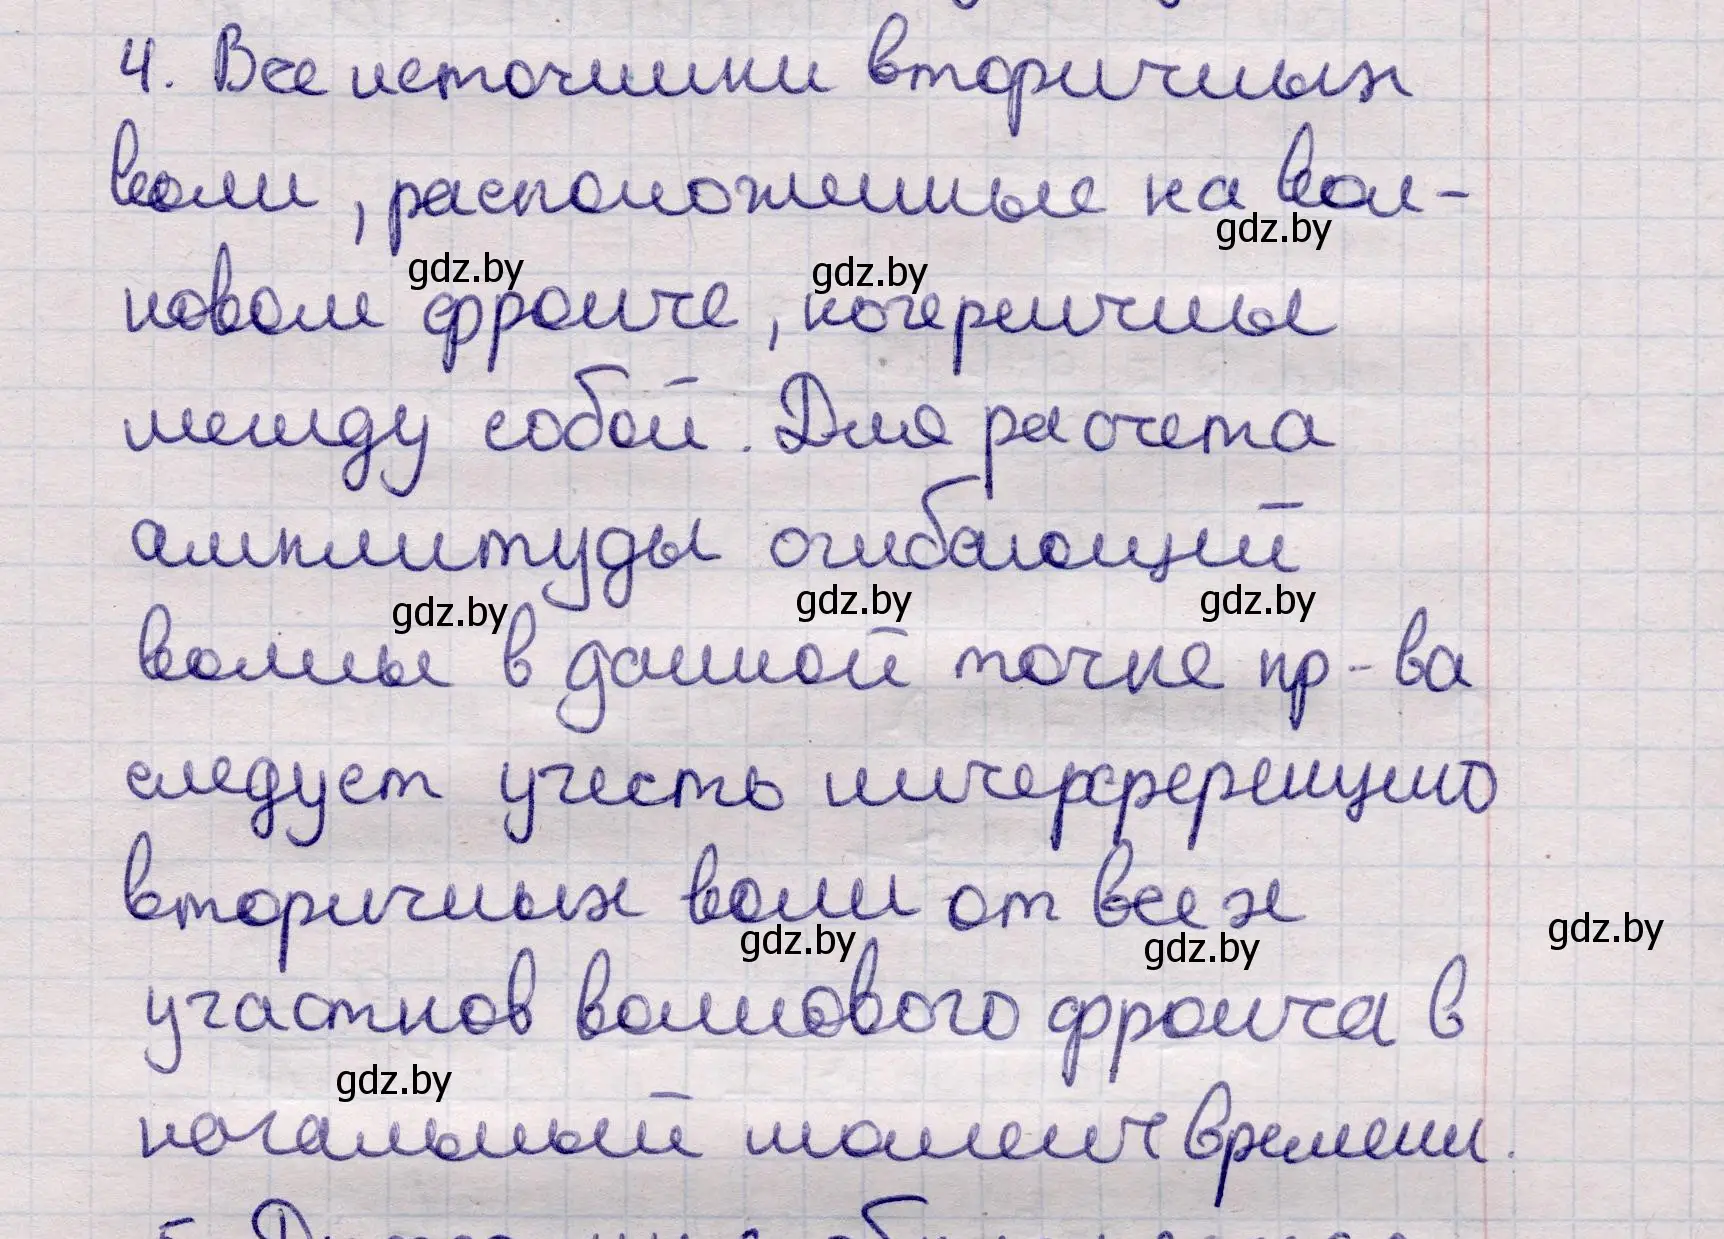 4. Все источники вторичных
волн, расположенные на вол-
новом фронте, когерентны
между собой. Для расчета
амплитуды огибающей
волны в данной точке пр-ва
следует учесть интерференцию
вторичных волн от всех
участков волнового фронта в
начальный момент времени.
gdz.by
gdz.by
gdz.by
gdz.by
gdz.by
gdz.by
gdz.by
gdz.by
gdz.by
gdz.by